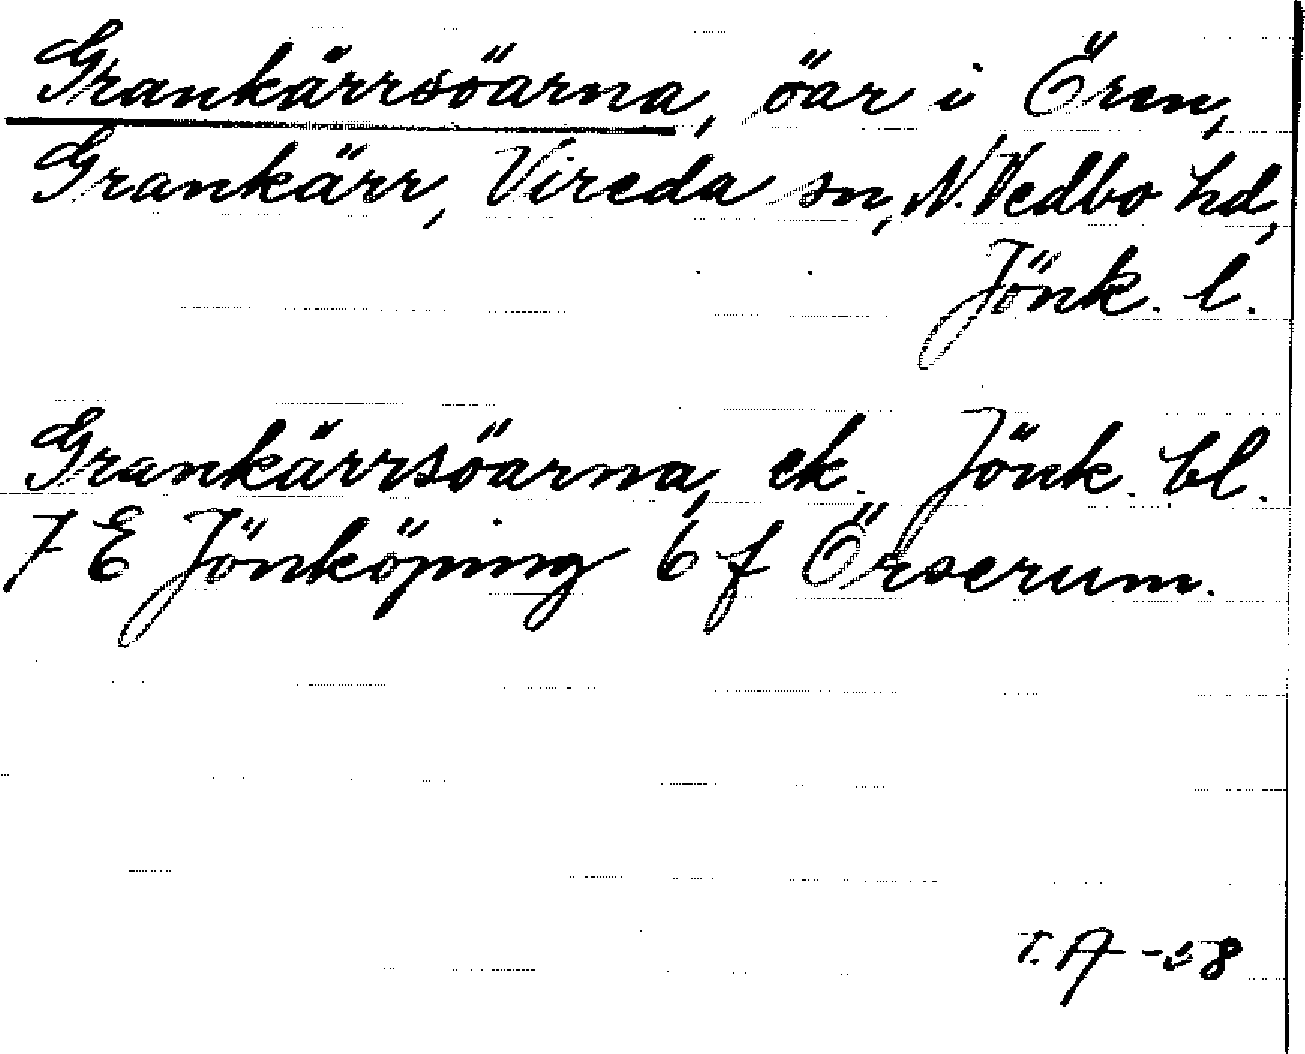 Grankärrsöarna, öar i Ören,
Grankärr, Vireda sn, N. Vedbo hd,
Jönk. l.
Grankärrsöarna, ek. Jönk. bl.
7 E Jönköping 6 f Örserum.
T. A